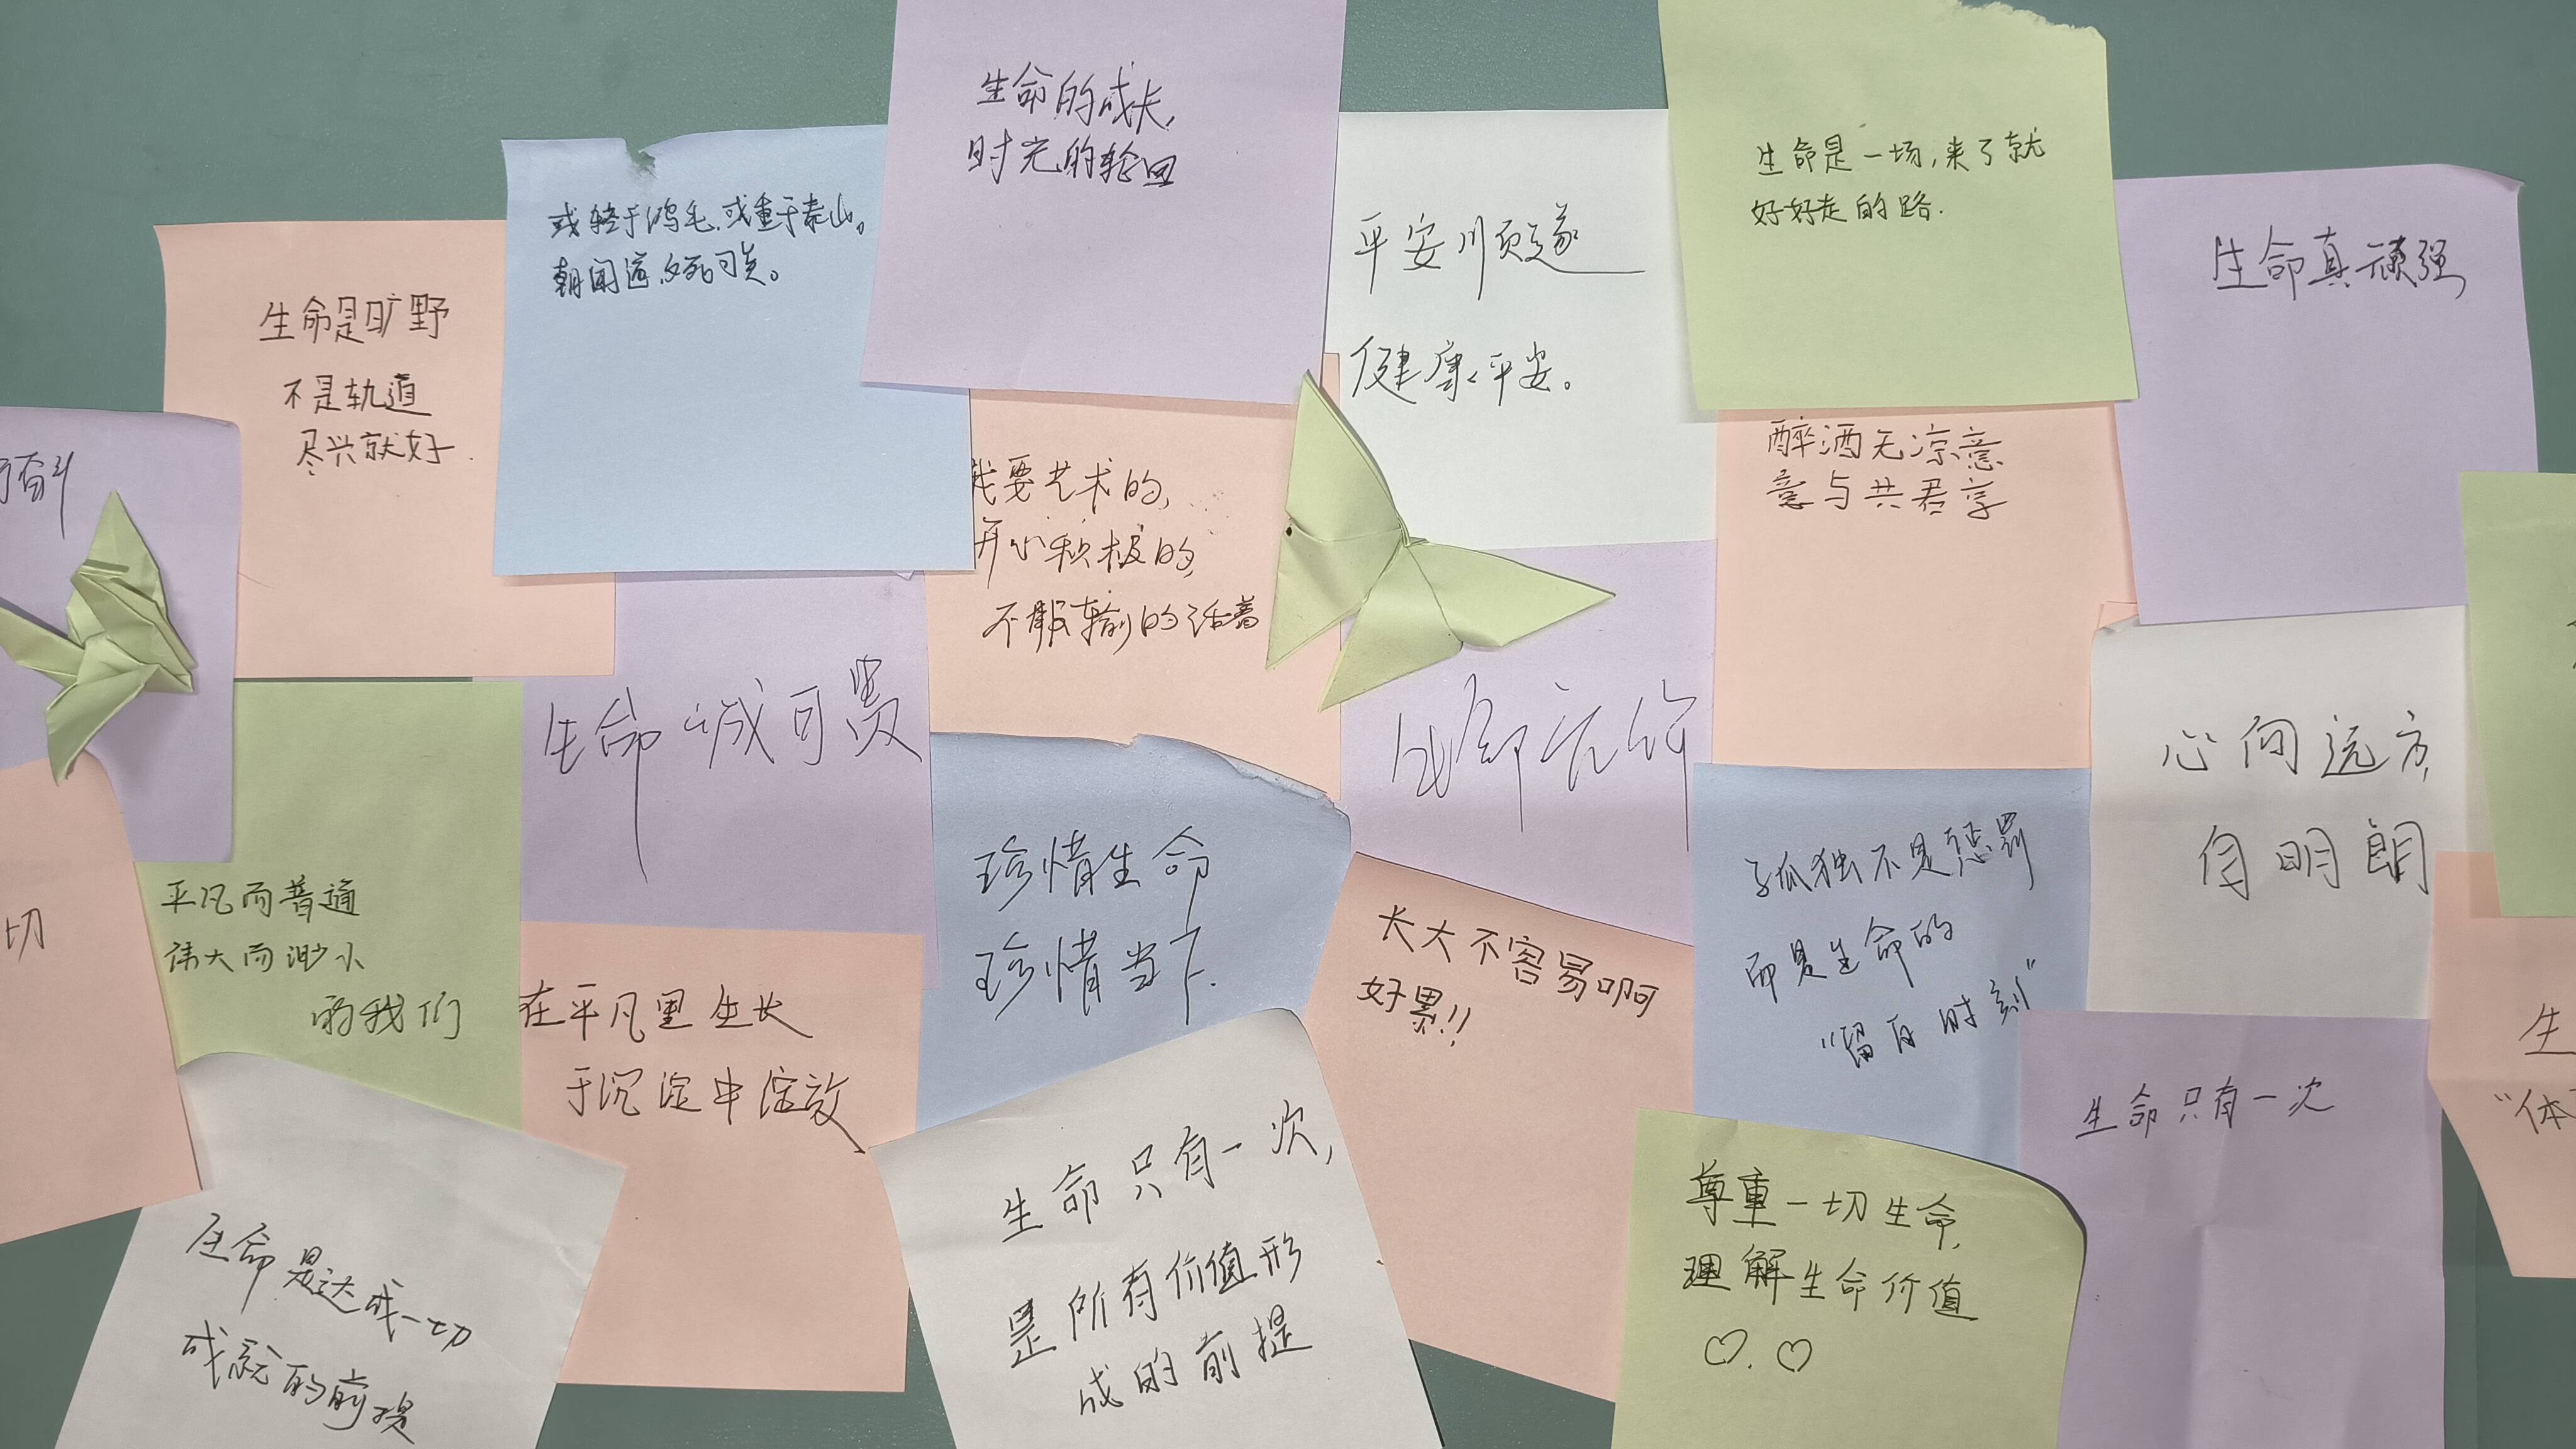 生命的成长,
时光的轮回
生命是一场,来了就
好好走的路.
或轻于鸿毛,或重于泰山。
朝闻道,夕死可矣。
平安顺遂
健康平安。
生命真顽强
生命是旷野
不是轨道
尽兴就好.
醉酒无凉意
意与共君享
奋斗
我要艺术的,
开心积极的,
不服输的活着
生命诚可贵
无价
心向远方,
自明朗
珍惜生命
珍惜当下.
孤独不是惩罚
而是生命的
"留白时刻"
平凡而普通
伟大而渺小
的我们
切
长大不容易啊
好累!!
在平凡里生长
于沉淀中绽放
生
"体
生命只有一次
生命只有一次,
是所有价值形
成的前提
尊重一切生命,
理解生命价值
♡.♡
生命是达成一切
成就的前提